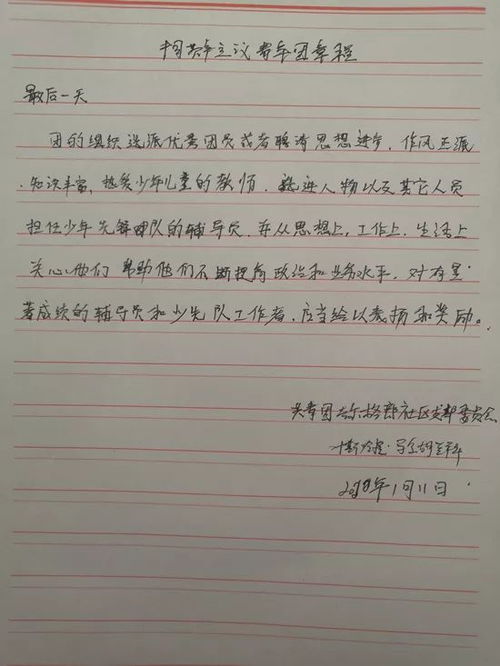 中国共青主议青年团章程
最后一天
团的组织选派优秀团员或者聘请思想进步,作风正派
、知识丰富,热爱少年儿童的教师、先进人物以及其它人员
担任少年先锋队的辅导员,并从思想上、工作上、生活上
关心他们帮助他们不断提高政治和业务水平。对有显
著成绩的辅导员和少先队工作者,应当给以表扬和奖励。
共青团 社区支部委员会
1月11日